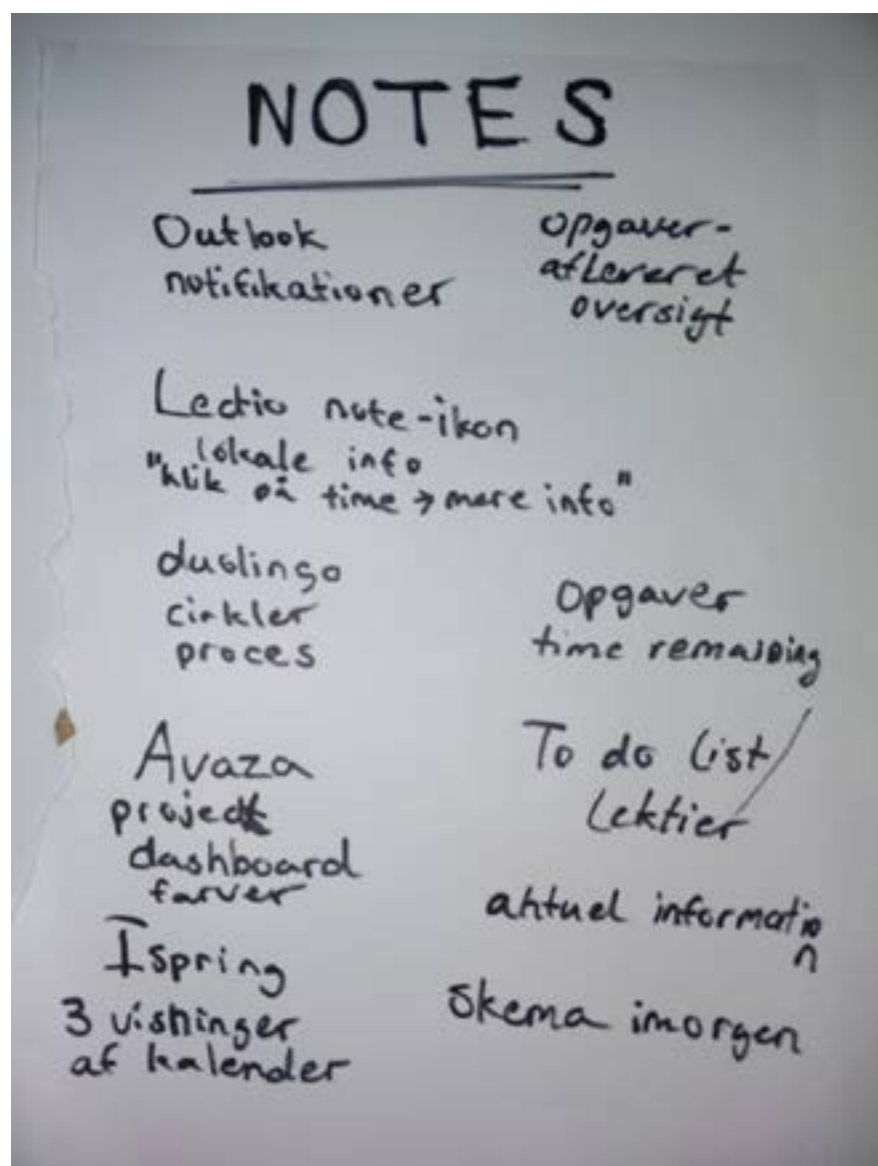 NOTES
Outlook
notifikationer
opgaver-
afleveret
oversigt
Lectio note-ikon
"lokale info
klik på time → mere info"
duolingo
cirkler
proces
opgaver
time remaining
Avaza
projekt
dashboard
farver
To do list/
lektier
Ispring
3 visninger
af kalender
aktuel information
Skema imorgen